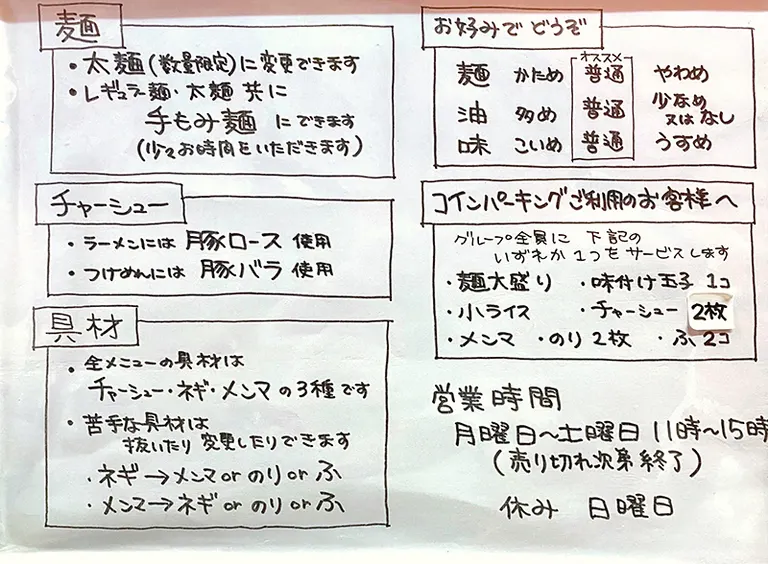 麺
・太麺(数量限定)に変更できます
・レギュラー麺・太麺 共に
手もみ麺 にできます
(少々お時間をいただきます)
チャーシュー
・ラーメンには 豚ロース 使用
・つけめんには 豚バラ 使用
具材
・全メニューの具材は
チャーシュー・ネギ・メンマの3種です
・苦手な具材は
抜いたり変更したりできます
・ネギ→メンマorのりorふ
・メンマ→ネギorのりorふ
お好みでどうぞ
オススメ
麺 かため 普通 やわめ
油 多め 普通 少なめ
又はなし
味 こいめ 普通 うすめ
コインパーキングご利用のお客様へ
グループ全員に 下記の
いずれか1つをサービスします
・麺大盛り ・味付け玉子 1コ
・小ライス ・チャーシュー 2枚
・メンマ ・のり2枚 ・ふ2コ
営業時間
月曜日〜土曜日 11時〜15時
(売り切れ次第終了)
休み 日曜日